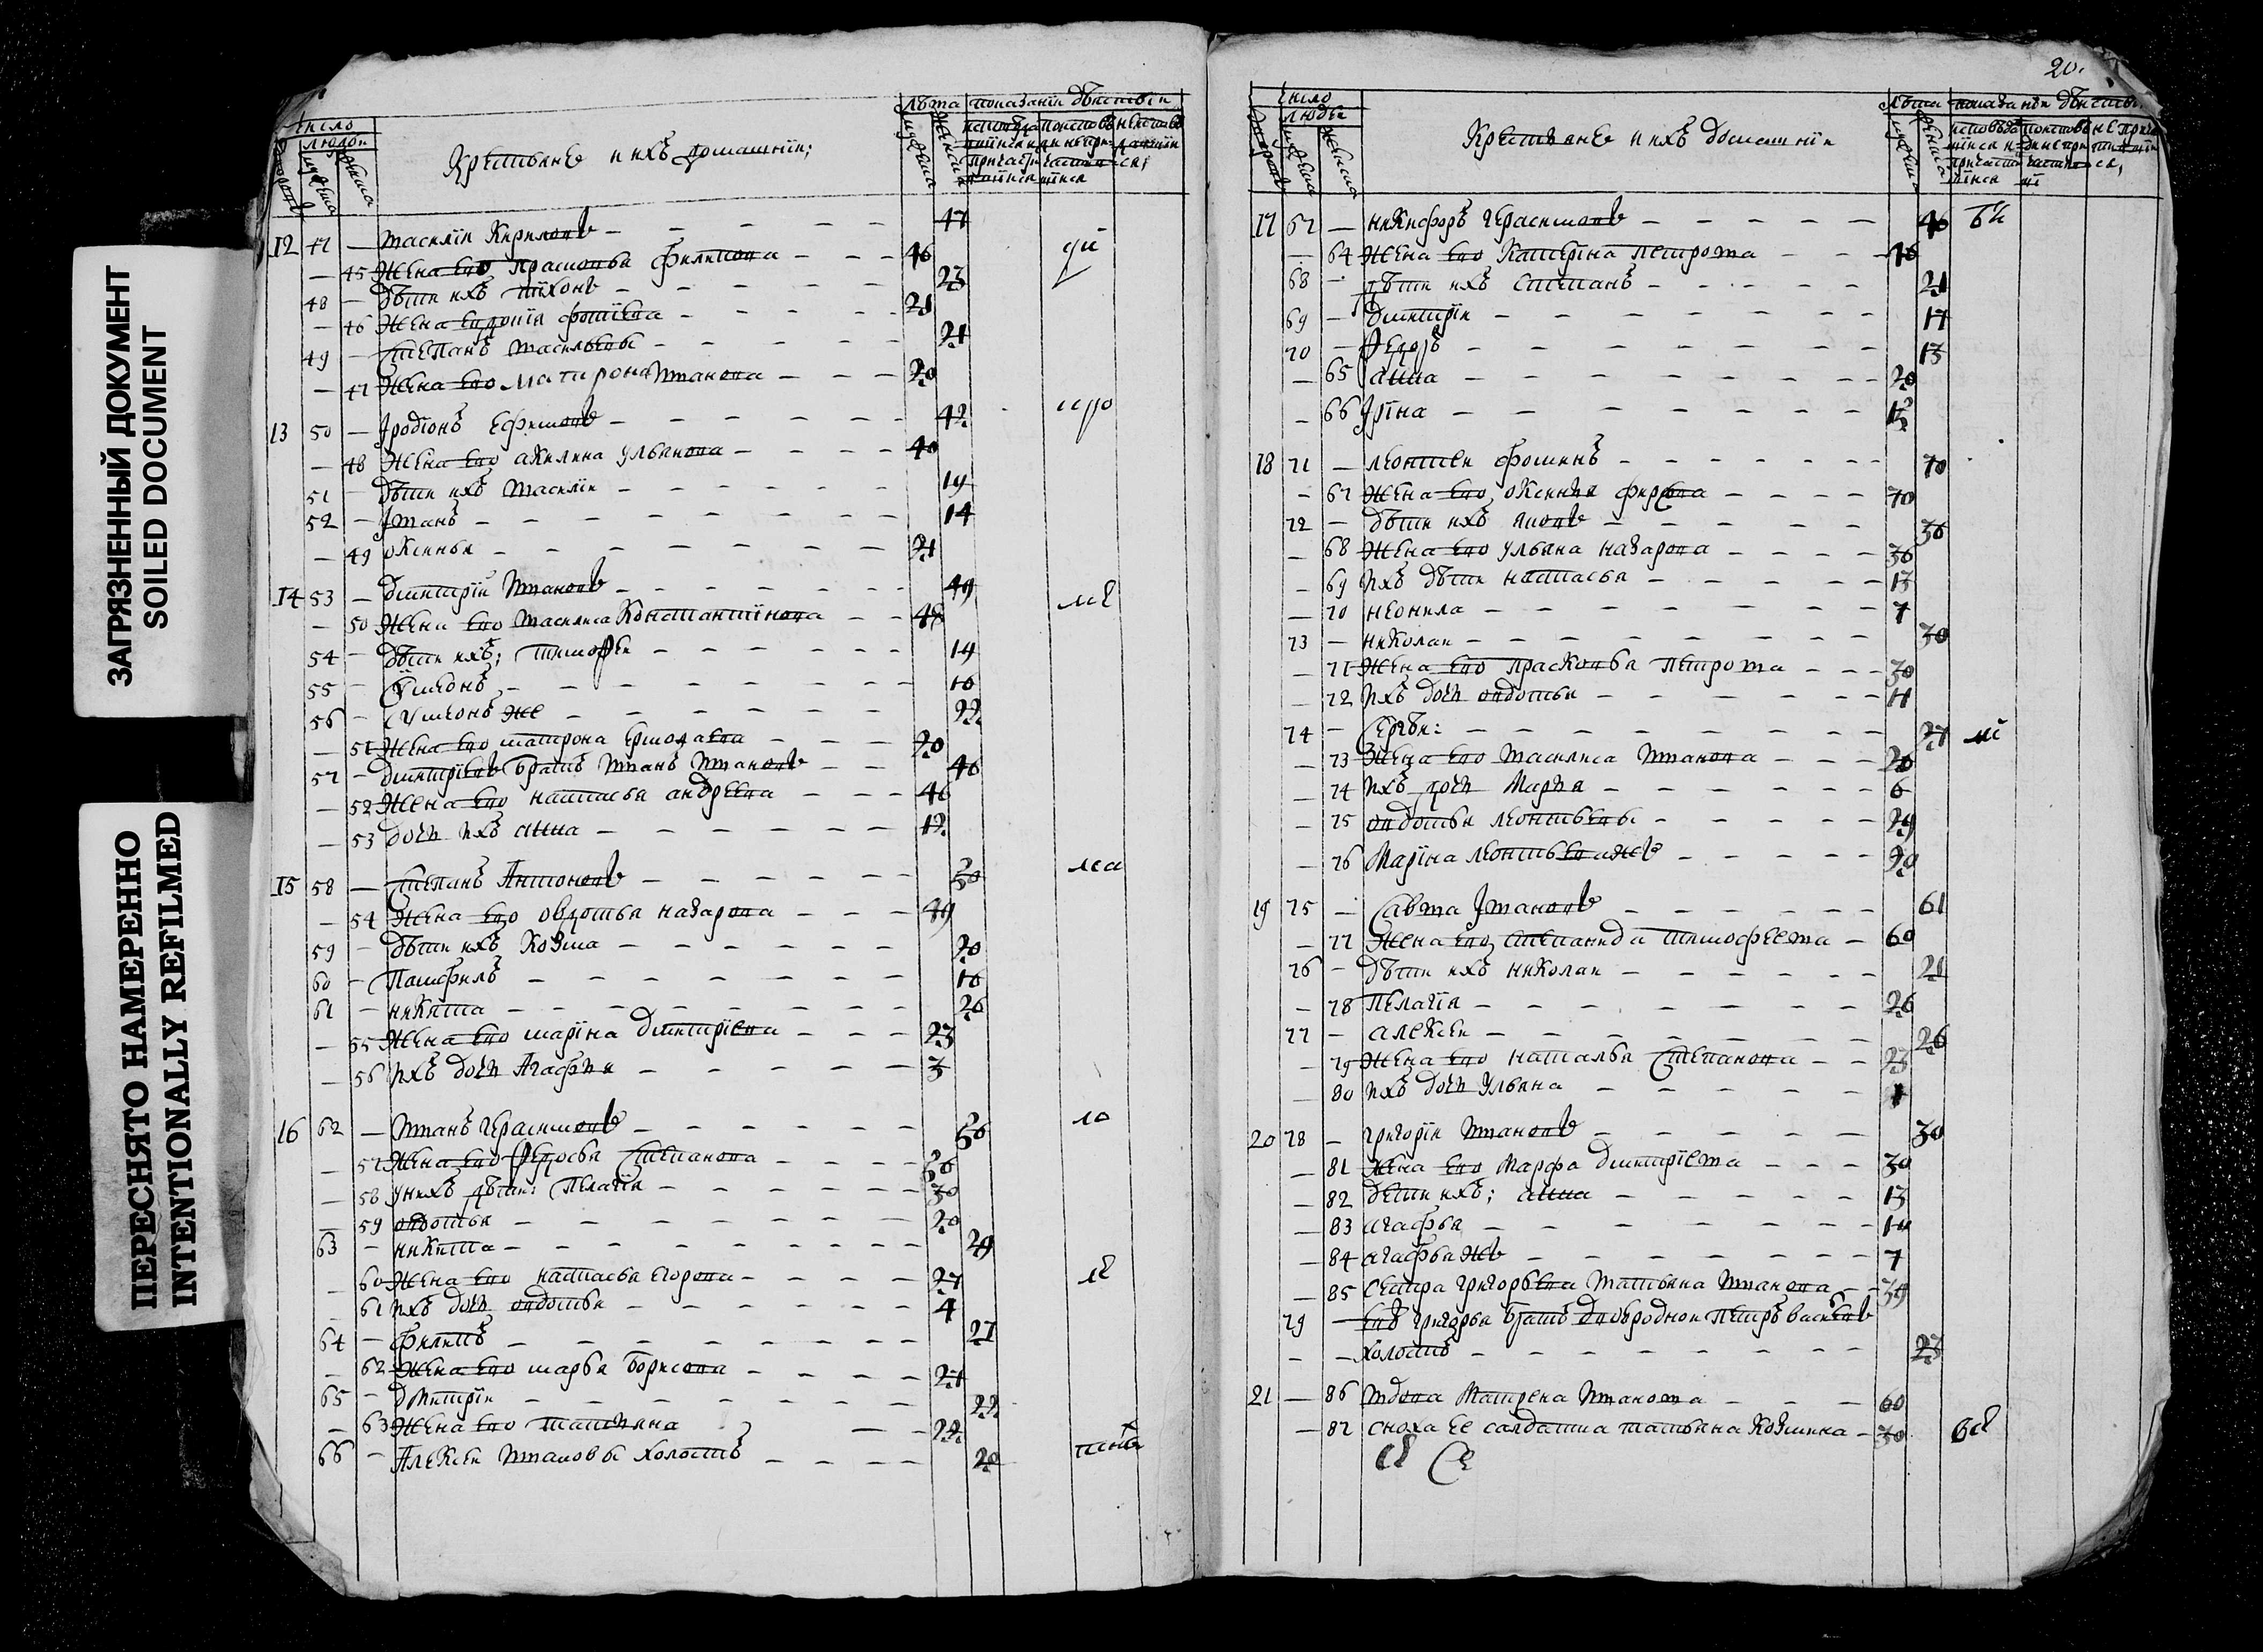 ЗАГРЯЗНЕННЫЙ ДОКУМЕНТ
SOILED DOCUMENT
ПЕРЕСНЯТО НАМЕРЕННО
INTENTIONALLY REFILMED
число
людей
Крестьяне и ихъ домашнїи;
лѣта показанїи дѣиствїи
12 47 — василїи Кириловъ 47
— 45 жена ево прасковья филипова 46
48 — дѣти ихъ тїхонъ 23
— 46 жена евдокїя фотїева 21
49 — степанъ васильевы 21
— 47 жена ево матрона иванова 20
13 50 — іродїонъ ефимовъ 42
— 48 жена ево акилина ульянова 40
51 — дѣти ихъ василїи 19
52 — іванъ 14
— 49 оксинья 21
14 53 — дмитрїи ивановъ 49
— 50 жена ево василиса Константїнова 48
54 — дѣти ихъ; тимофеи 19
55 — сѵмеонъ 10
56 — сѵмеонъ же 22
— 51 жена ево матрона ермолаева 20
57 — дмитрїевъ братъ иванъ ивановъ 46
— 52 жена ево настасья андреева 46
— 53 дочь ихъ анна 12
15 58 — степанъ Антоновъ 50
— 54 жена ево овдотья назарова 49
59 — дѣти ихъ козма 20
60 — Памфилъ 10
61 — никита 26
— 55 жена ево марїна дмитрїева 23
— 56 ихъ дочь Агафия 3
16 62 — иванъ герасимовъ 56
— 57 жена ево федосья степанова 56
— 58 у нихъ дѣти: Пелагїя 30
— 59 овдотья 20
63 — никита 29
— 60 жена ево настасья егорова 27
— 61 ихъ дочь овдотья 4
64 — филипъ 27
— 62 жена ево марья борисова 27
65 — дмитрїи 22
— 63 жена ево татияна 22
66 — Алексеи ивановы холостъ 20
20.
число
людеи
Крестьяне и ихъ домашнїи
лѣта показанїи дѣиствїи
17 67 — никифоръ герасимовъ 46
— 64 жена ево катерїна петрова 46
68 — дѣти ихъ степанъ 21
69 — дмитрїи 17
70 — федоръ 13
— 65 анна 20
— 66 ірїна
18 71 — леонтеи фоминъ 70
— 67 жена ево оксинья фирсова 70
72 — дѣти ихъ 36
— 68 жена ево ульяна назарова 36
— 69 ихъ дѣти настасья 13
— 70 неонила 7
73 — николаи 30
— 71 жена ево прасковья петрова 30
— 72 ихъ дочь овдотья 11
74 — сергѣи: 27
— 73 жена ево василиса иванова 26
— 74 ихъ дочь Мария 6
— 75 овдотья леонтьевы 29
— 76 Марїна леонтьева жъ 20
19 75 — савва івановъ 61
— 77 жена ево степанида тимофеева 60
76 — дѣти ихъ николаи 21
— 78 Пелагїя 26
77 — алексеи 26
— 79 жена ево наталья степанова 23
— 80 ихъ дочь ульяна 1
20 78 — григорїи ивановъ 30
— 81 жена ево марфа дмитрїева 30
— 82 дети ихъ; анна 13
— 83 агафья 10
— 84 агафья жъ 7
— 85 сестра григорьева татьяна иванова 39
79 — григорья братъ двоюродной петръ
— — холостъ 23
21 — 86 вдова Матрена иванова 60
— 87 сноха ее салдатка татьяна козмина 30